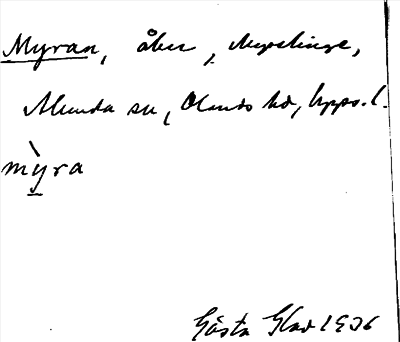 Myran, åker,
Alunda sn, Olands hd, Upps. l.
mỳra
Gösta Glad 1936